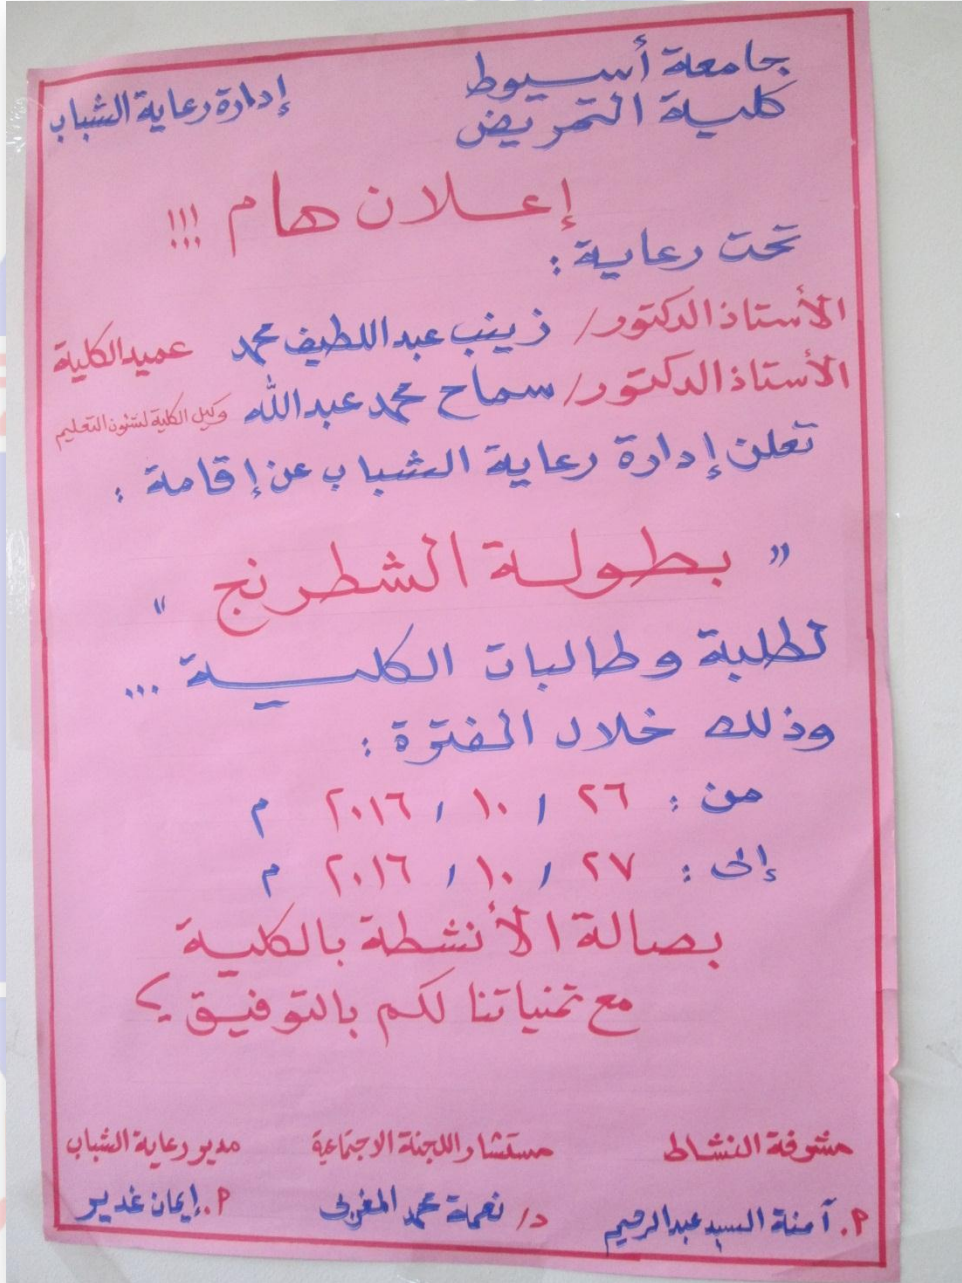 جامعة أسيوط
كلية التمريض
إدارة رعاية الشباب
إعلان هام !!!
تحت رعاية :
الأستاذ الدكتور / زينب عبد اللطيف محمد عميد الكلية
الأستاذ الدكتور / سماح محمد عبد الله وكيل الكلية لشئون التعليم
تعلن إدارة رعاية الشباب عن إقامة :
" بطولة الشطرنج "
لطلبة وطالبات الكلية ...
وذلك خلال الفترة :
من : ٢٦ / ١٠ / ٢٠١٦ م
إلى : ٢٧ / ١٠ / ٢٠١٦ م
بصالة الأنشطة بالكلية
مع تمنياتنا لكم بالتوفيق ؟
مشرفة النشاط
أ. آمنة السيد عبد الرحيم
مستشار اللجنة الاجتماعية
د/ نعمة محمد المغربى
مدير رعاية الشباب
أ. إيمان غدير